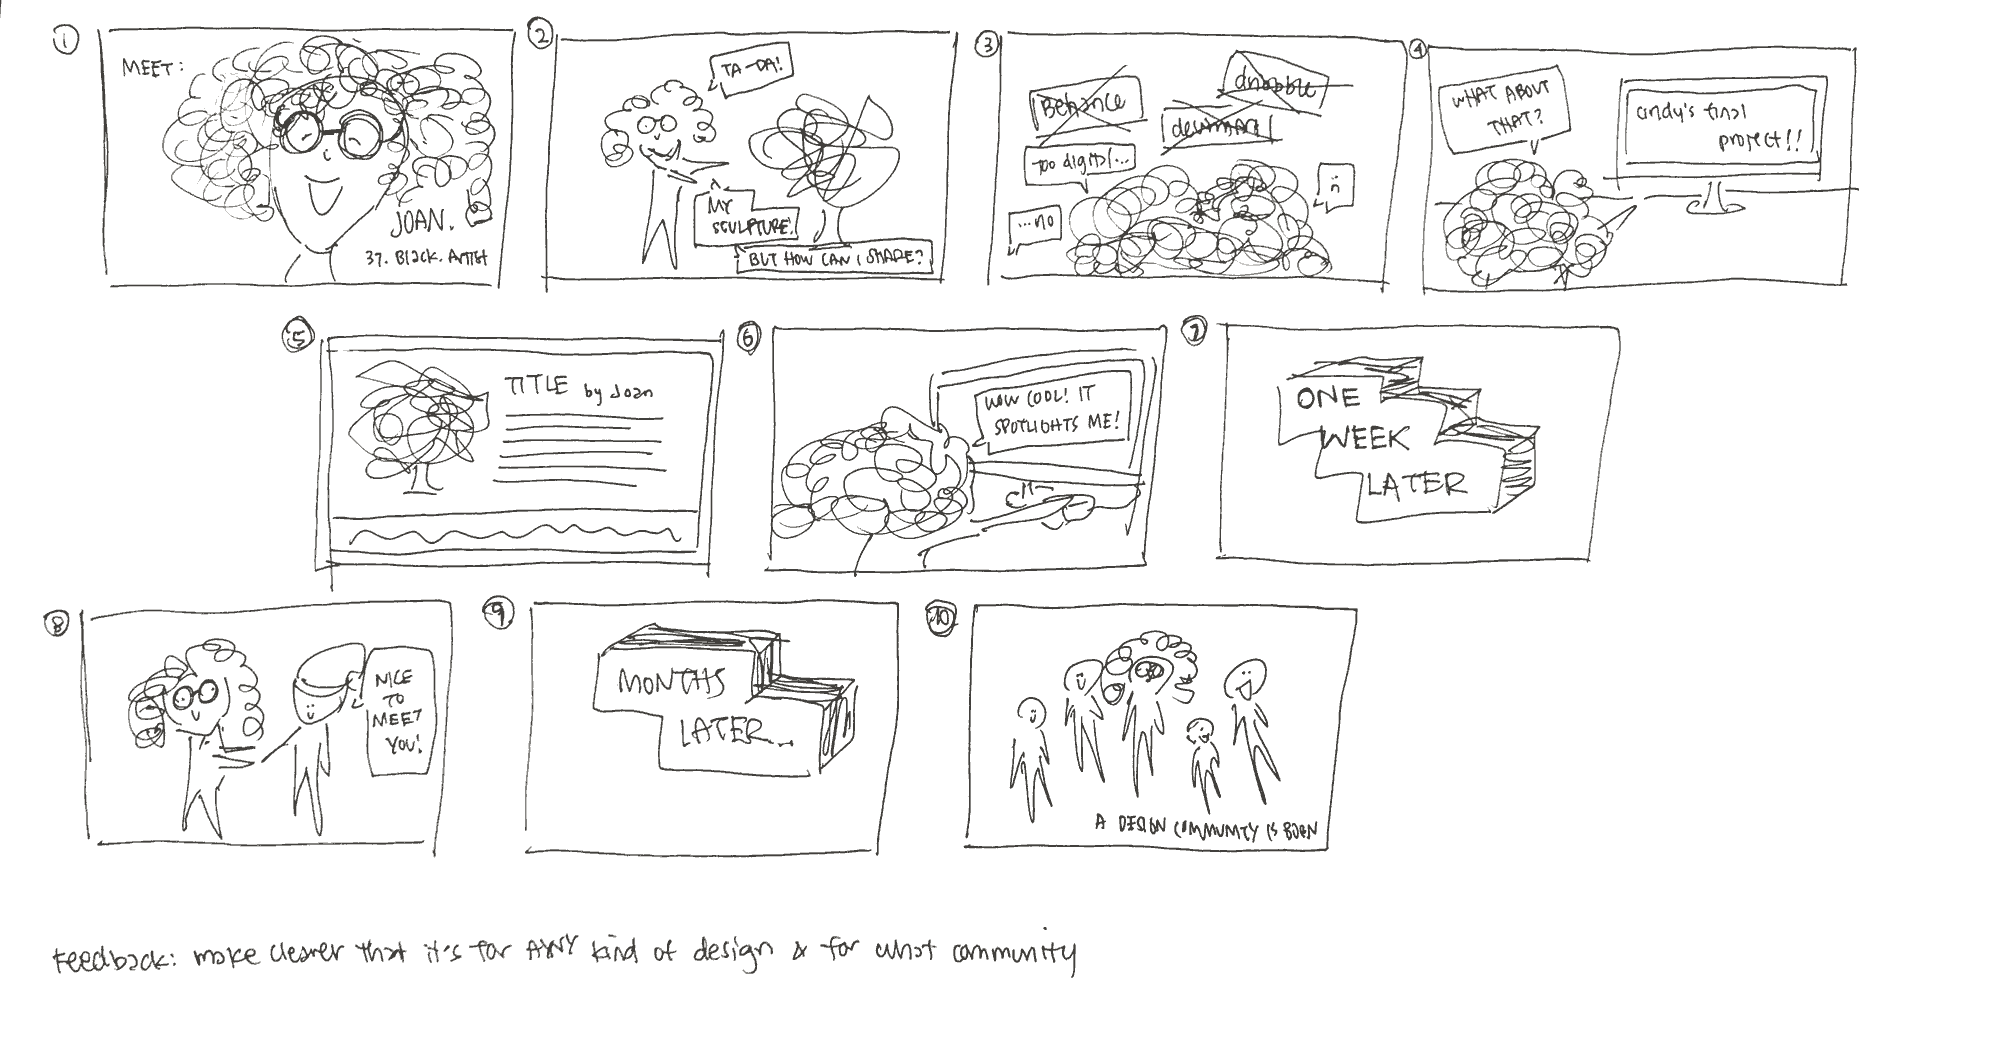 ①
MEET:
JOAN.
37. Black. Artist
②
TA-DA!
MY
SCULPTURE!
BUT HOW CAN I SHARE?
③
Behance
dribbble
too digital...
...no
④
WHAT ABOUT
THAT?
cindy's final
project!!
⑤
TITLE by Joan
⑥
WOW COOL! IT
SPOTLIGHTS ME!
⑦
ONE
WEEK
LATER
⑧
NICE
TO
MEET
YOU!
⑨
MONTHS
LATER...
⑩
A DESIGN COMMUNITY IS BORN
Feedback: make clearer that it's for ANY kind of design & for what community